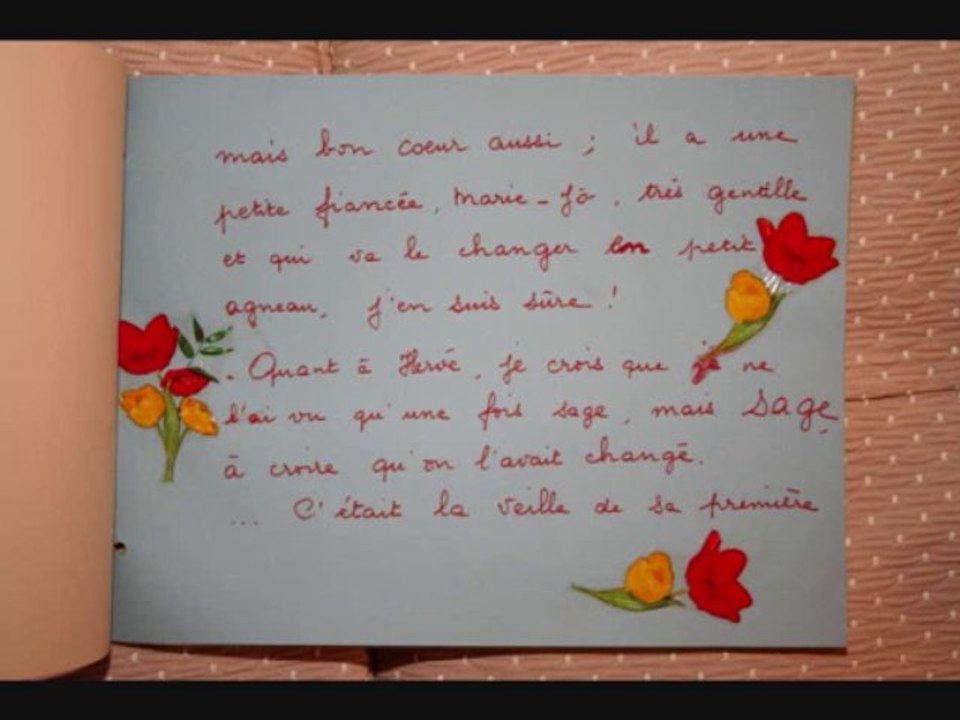 mais bon coeur aussi ; il a une
petite fiancée, Marie-Jo, très gentille
et qui va le changer en petit
agneau, j'en suis sûre !
. Quant à Hervé, je crois que je ne
l'ai vu qu'une fois sage, mais sage
à croire qu'on l'avait changé.
... C'était la veille de sa première